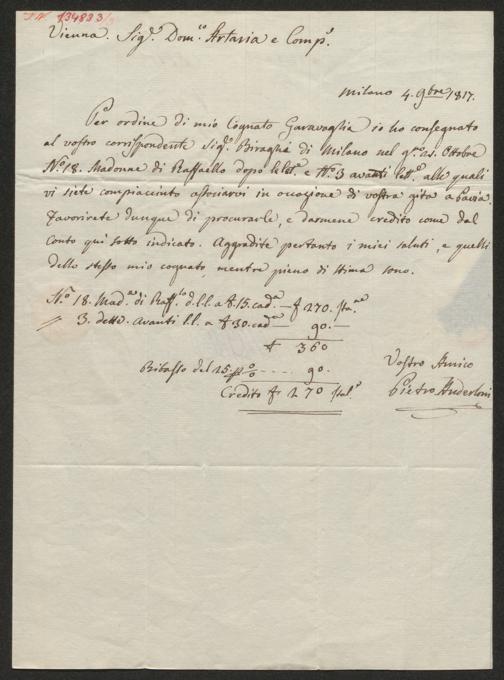 I.N. 134833
Vienna. Sig.ri Dom.co Artaria e Comp.i
Milano 4. 9bre 1817.
Per ordine di mio Cognato Garavaglia io ho consegnato
al vostro corrispondente Sig.r Biraghi di Milano nel 25. Ottobre
N.o 18. Madonne di Raffaello dopo le let.e e N.o 3 avanti let.e alle quali
vi siete compiacciuto associarvi in occazione di vostra gita a Pavia.
Favorirete dunque di procurarle, e darmene credito come dal
Conto qui sotto indicato. Aggradite pertanto i miei saluti, e quelli
dello stesso mio cognato, mentre pieno di stima sono.
N.o 18. Mad.ne di Raff.lo d. l. l. a £ 15. cad.a — £ 270. Ita.ne
" 3. dette avanti l. l. a £ 30. cad.a — 90. —
£ 360
Ribasso del 25. p.o/o .... 90. —
Credito £ 270 Ital.e
Vostro Amico
Pietro Anderloni